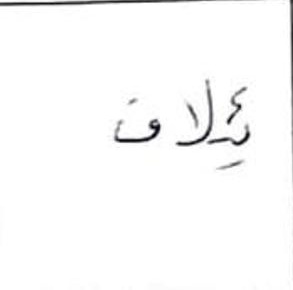 ئِلاف